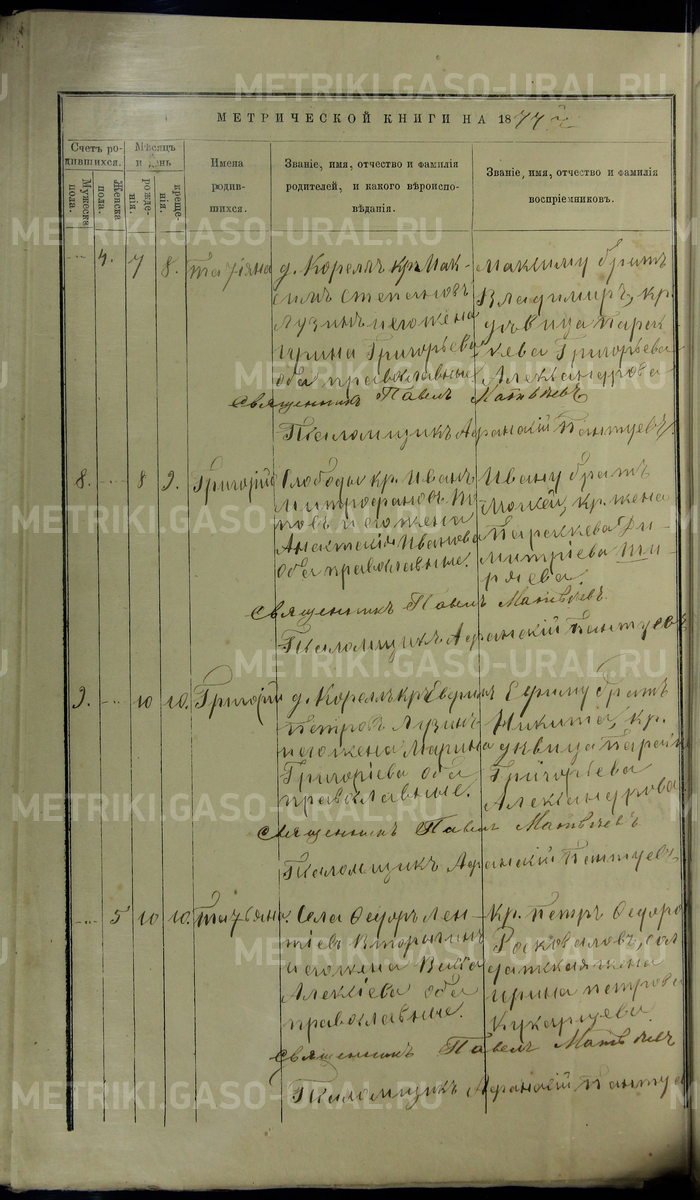 METRIKI.GASO-URAL.RU
МЕТРИЧЕСКОЙ КНИГИ НА 1877й
Счетъ ро-
дившихся.
Мужеска
пола.
Женска
пола.
Мѣсяцъ
и день
рожде-
нія.
креще-
нія.
Имена
родив-
шихся.
Званіе, имя, отчество и фамилія
родителей, и какого вѣроиспо-
вѣданія.
Званіе, имя, отчество и фамилія
воспріемниковъ.
4. 7 8. Татіяна
д. Корелъ кр. Мак-
симъ Степановъ
Лузинъ и его жена
Ирина Григорьева
оба православные
Максиму братъ
Владимиръ, кр.
вдовица Парас-
кева Григорьева
Александрова
Священникъ Павелъ Матвѣевъ
Псаломщикъ Афанасій Пантуевъ
8. 8 9. Григорій
Слободы кр. Иванъ
Митрофановъ
и его жена
Анастасія Иванова
оба православные.
Ивану братъ
Мокей, кр. жена
Параскева Ди-
митріева
Священникъ Павелъ Матвѣевъ
Псаломщикъ Афанасій Пантуевъ
9. 10 10. Григорій
д. Корелъ кр. Ефимъ
Петровъ Лузинъ
и его жена Марина
Григоріева оба
православные.
Ефиму братъ
Никита, кр.
вдовица
Григорьева
Александрова
Священникъ Павелъ Матвѣевъ
Псаломщикъ Афанасій Пантуевъ
5 10 10. Татьяна.
Села Ѳедоръ Лен-
тіевъ Вторыгинъ
и его жена Васса
Алексіева оба
православные.
Кр. Петръ Ѳедоро
Раковаловъ, сол
датская жена
Ирина Петрова
Кукарцева
Священникъ Павелъ Матвѣевъ
Псаломщикъ Афанасій Пантуев